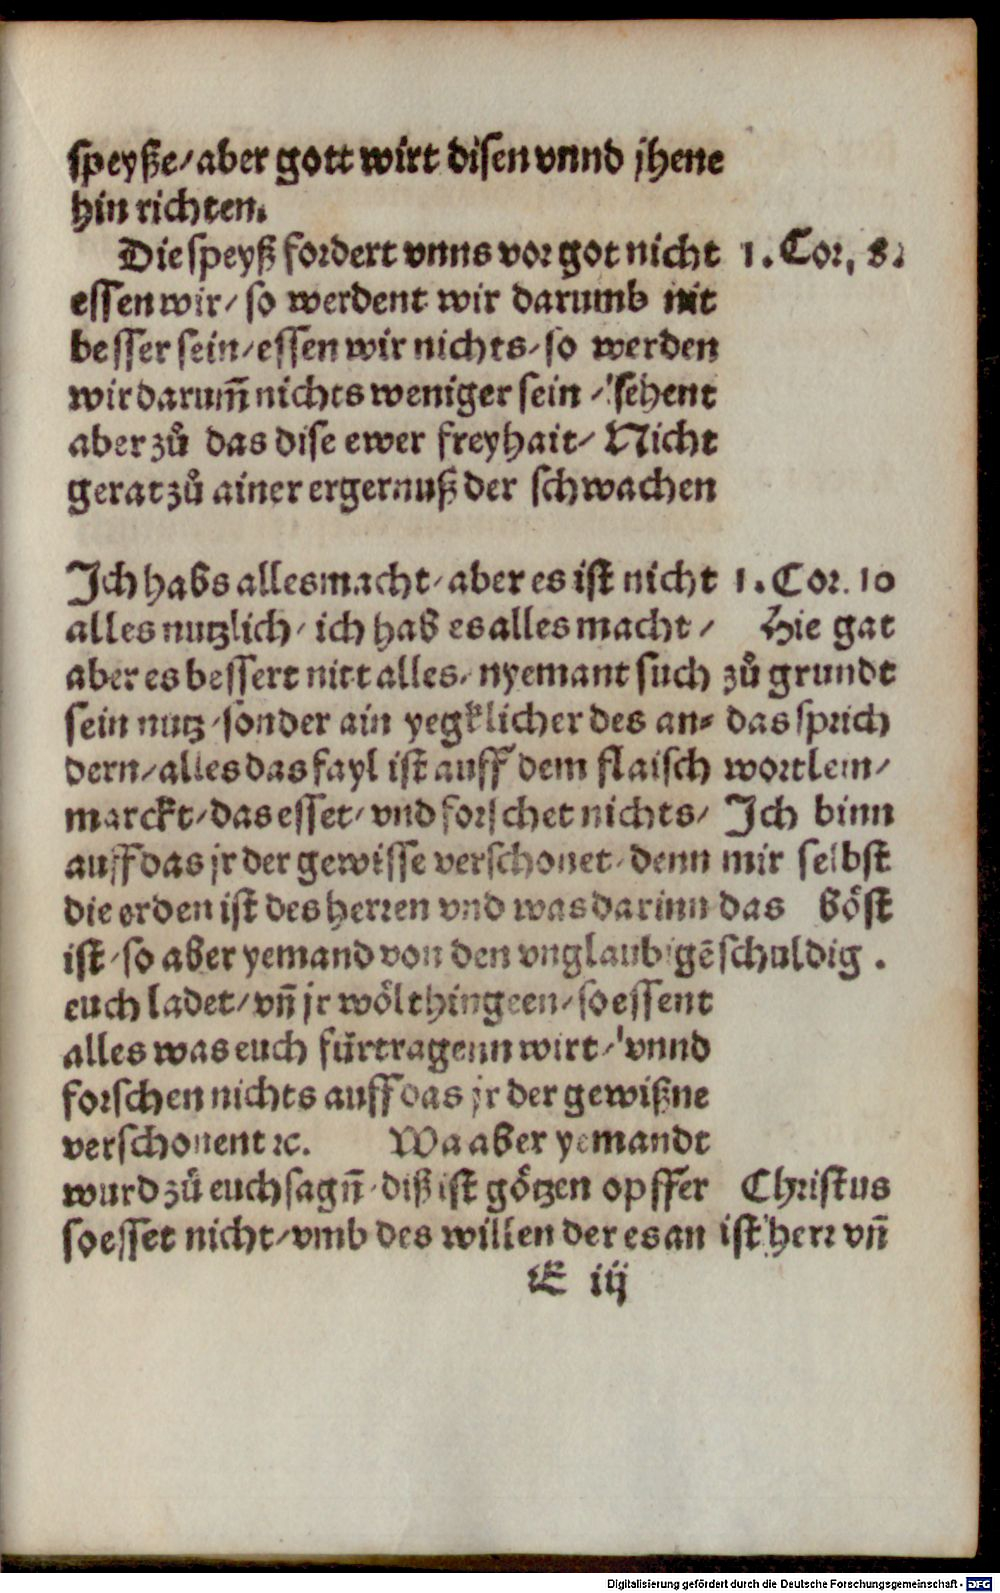 speyße/ aber gott wirt disen vnnd jhene
hin richten.
Die speyß fordert vnns vor got nicht
essen wir/ so werdent wir darumb nit
besser sein/ essen wir nichts/ so werden
wir darum̄ nichts weniger sein/ sehent
aber zů das dise ewer freyhait/ Nicht
gerat zů ainer ergernuß der schwachen
1. Cor, 8.
Ich habs alles macht/ aber es ist nicht
alles nutzlich/ ich hab es alles macht/
aber es bessert nitt alles/ nyemant such
sein nutz/ sonder ain yegklicher des an-
dern/ alles das fayl ist auff dem flaisch
marckt/ das esset/ vnd forschet nichts/
auff das jr der gewisse verschonet/ denn
die erden ist des herren vnd was darinn
ist/ so aber yemand von den vnglaubigē
euch ladet/ vn̄ jr wölt hingeen/ so essent
alles was euch fürtragenn wirt/ vnnd
forschen nichts auff das jr der gewißne
verschonent ꝛc. Wa aber yemandt
wurd zů euch sagn̄/ diß ist götzen opffer
so esset nicht/ vmb des willen der es an
1. Cor. 10
Hie gat
zů grundt
das sprich
wortlein/
Ich binn
mir selbst
das böst
schuldig.
Christus
ist herr vn̄
E iij
Digitalisierung gefördert durch die Deutsche Forschungsgemeinschaft - DFG